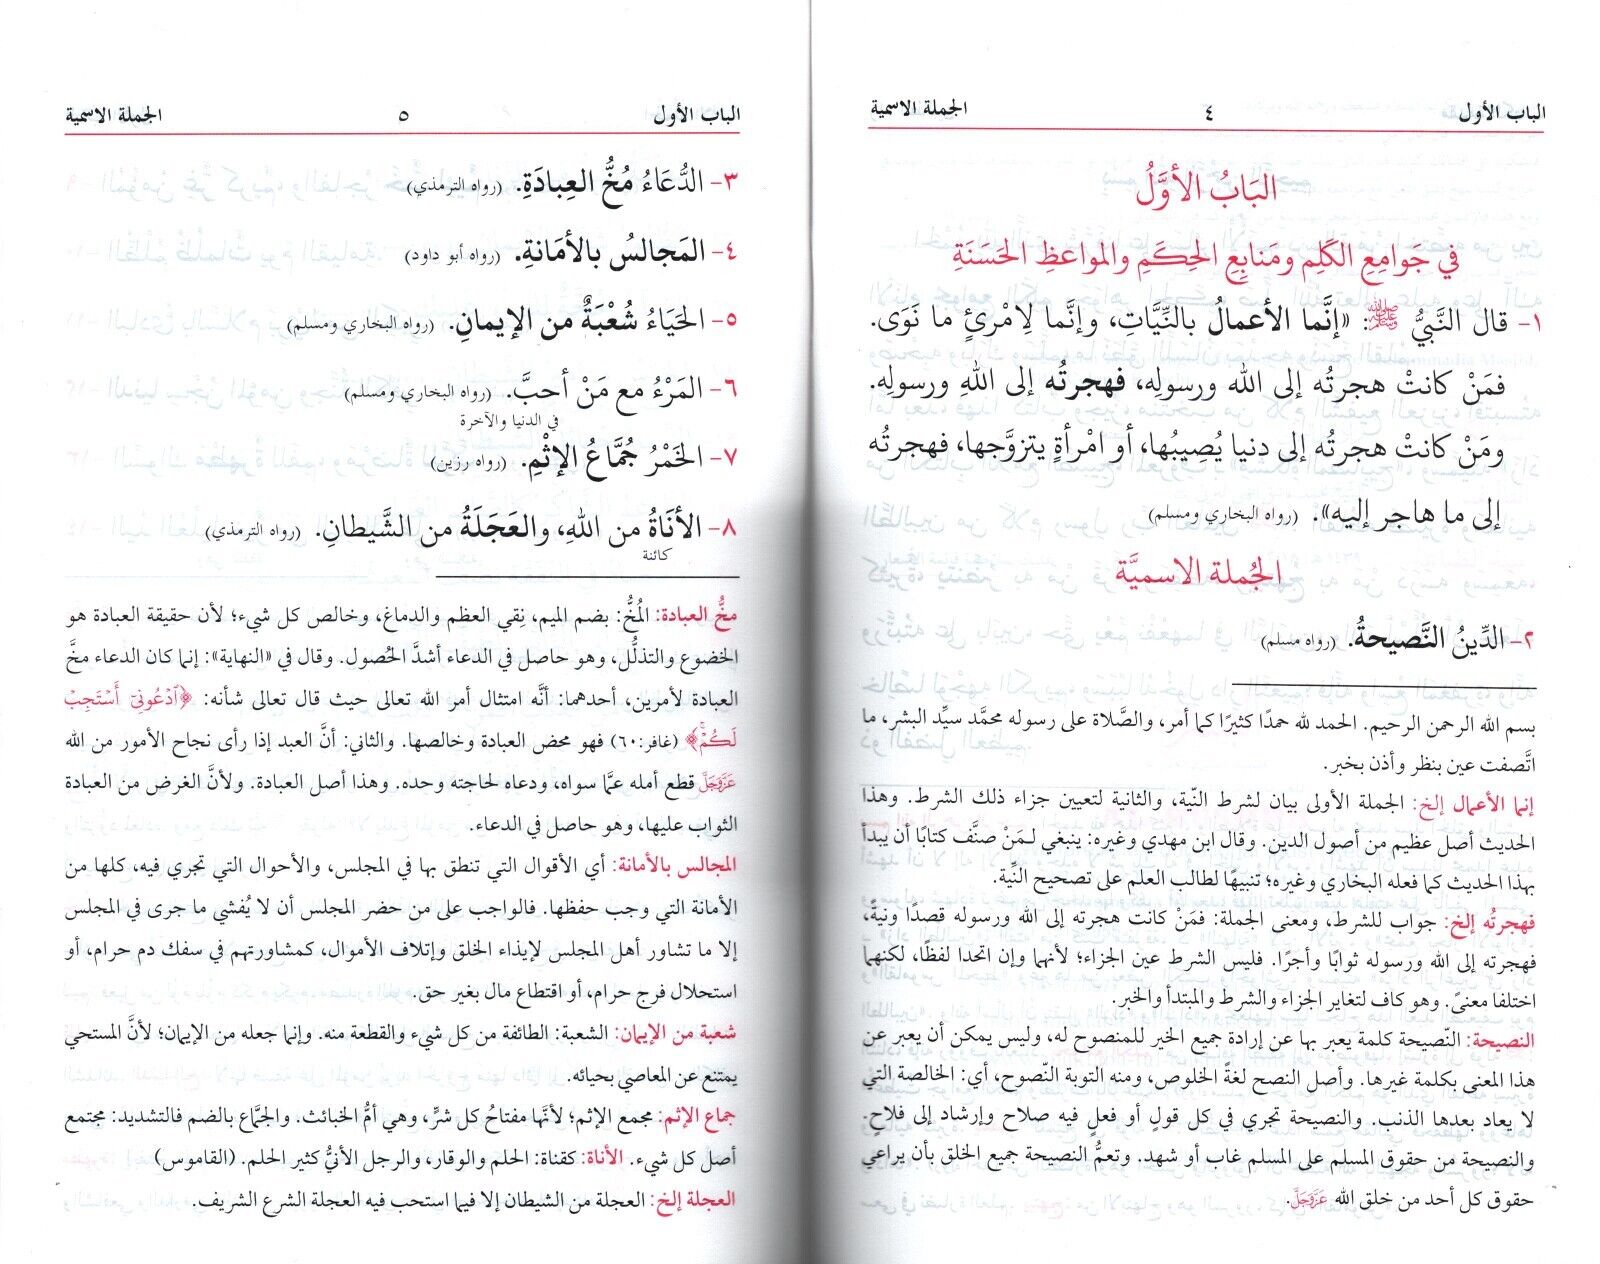 الباب الأول ٤ الجملة الاسمية
البَابُ الأَوَّلُ
في جَوامِعِ الكَلِمِ ومَنابِعِ الحِكَمِ والمواعظِ الحَسَنَةِ
١- قال النَّبيُّ ﷺ: «إنَّما الأعمالُ بالنِّيَّاتِ، وإنَّما لِامْرئٍ ما نَوَى.
فمَنْ كانتْ هجرتُه إلى الله ورسولِه، فهجرتُه إلى اللهِ ورسولِه.
ومَنْ كانتْ هجرتُه إلى دنيا يُصِيبُها، أو امْرأةٍ يتزوَّجها، فهجرتُه
إلى ما هاجر إليه». (رواه البخاري ومسلم)
الجُملة الاسميَّة
٢- الدِّينُ النَّصيحةُ. (رواه مسلم)
بسم الله الرحمن الرحيم. الحمد لله حمدًا كثيرًا كما أمر، والصَّلاة على رسوله محمَّد سيِّد البشر، ما
اتَّصفت عين بنظر وأذن بخبر.
إنما الأعمال إلخ: الجملة الأولى بيان لشرط النّية، والثانية لتعيين جزاء ذلك الشرط. وهذا
الحديث أصل عظيم من أصول الدين. وقال ابن مهدي وغيره: ينبغي لـمَنْ صنَّف كتابًا أن يبدأ
بهذا الحديث كما فعله البخاري وغيره؛ تنبيهًا لطالب العلم على تصحيح النِّية.
فهجرتُه إلخ: جواب للشرط، ومعنى الجملة: فمَنْ كانت هجرته إلى الله ورسوله قصدًا ونيةً،
فهجرته إلى الله ورسوله ثوابًا وأجرًا. فليس الشرط عين الجزاء؛ لأنهما وإن اتحدا لفظًا، لكنهما
اختلفا معنىً. وهو كاف لتغاير الجزاء والشرط والمبتدأ والخبر.
النصيحة: النّصيحة كلمة يعبر بها عن إرادة جميع الخير للمنصوح له، وليس يمكن أن يعبر عن
هذا المعنى بكلمة غيرها. وأصل النصح لغةً الخلوص، ومنه التوبة النّصوح، أي: الخالصة التي
لا يعاد بعدها الذنب. والنصيحة تجري في كل قولٍ أو فعلٍ فيه صلاح وإرشاد إلى فلاحٍ.
والنصيحة من حقوق المسلم على المسلم غاب أو شهد. وتعمُّ النصيحة جميع الخلق بأن يراعي
حقوق كل أحد من خلق الله عَزَّوَجَلَّ.
الباب الأول ٥ الجملة الاسمية
٣- الدُّعَاءُ مُخُّ العِبادَةِ. (رواه الترمذي)
٤- المَجالسُ بالأمَانةِ. (رواه أبو داود)
٥- الحَيَاءُ شُعْبَةٌ من الإيمانِ. (رواه البخاري ومسلم)
٦- المَرْءُ مع مَنْ أحبَّ. (رواه البخاري ومسلم)
في الدنيا والآخرة
٧- الخَمْرُ جُمَّاعُ الإثْمِ. (رواه رزين)
٨- الأنَاةُ من اللهِ، والعَجَلَةُ من الشَّيطانِ. (رواه الترمذي)
كائنة
مخُّ العبادة: المُخُّ: بضم الميم، نِقي العظم والدماغ، وخالص كل شيء؛ لأن حقيقة العبادة هو
الخضوع والتذلُّل، وهو حاصل في الدعاء أشدَّ الحُصول. وقال في «النهاية»: إنما كان الدعاء مخَّ
العبادة لأمرين، أحدهما: أنَّه امتثال أمر الله تعالى حيث قال تعالى شأنه: ﴿ٱدْعُونِيٓ أَسْتَجِبْ
لَكُمْۚ﴾ (غافر:٦٠) فهو محض العبادة وخالصها. والثاني: أنَّ العبد إذا رأى نجاح الأمور من الله
عَزَّوَجَلَّ قطع أمله عمَّا سواه، ودعاه لحاجته وحده. وهذا أصل العبادة. ولأنَّ الغرض من العبادة
الثواب عليها، وهو حاصل في الدعاء.
المجالس بالأمانة: أي الأقوال التي تنطق بها في المجلس، والأحوال التي تجري فيه، كلها من
الأمانة التي وجب حفظها. فالواجب على من حضر المجلس أن لا يُفشي ما جرى في المجلس
إلا ما تشاور أهل المجلس لإيذاء الخلق وإتلاف الأموال، كمشاورتهم في سفك دم حرام، أو
استحلال فرج حرام، أو اقتطاع مال بغير حق.
شعبة من الإيمان: الشعبة: الطائفة من كل شيء والقطعة منه. وإنما جعله من الإيمان؛ لأنَّ المستحي
يمتنع عن المعاصي بحيائه.
جماع الإثم: مجمع الإثم؛ لأنَّها مفتاحُ كل شرٍّ، وهي أمُّ الخبائث. والجمَّاع بالضم فالتشديد: مجتمع
أصل كل شيء. الأناة: كقناة: الحلم والوقار، والرجل الأنيُّ كثير الحلم. (القاموس)
العجلة إلخ: العجلة من الشيطان إلا فيما استحب فيه العجلة الشرع الشريف.